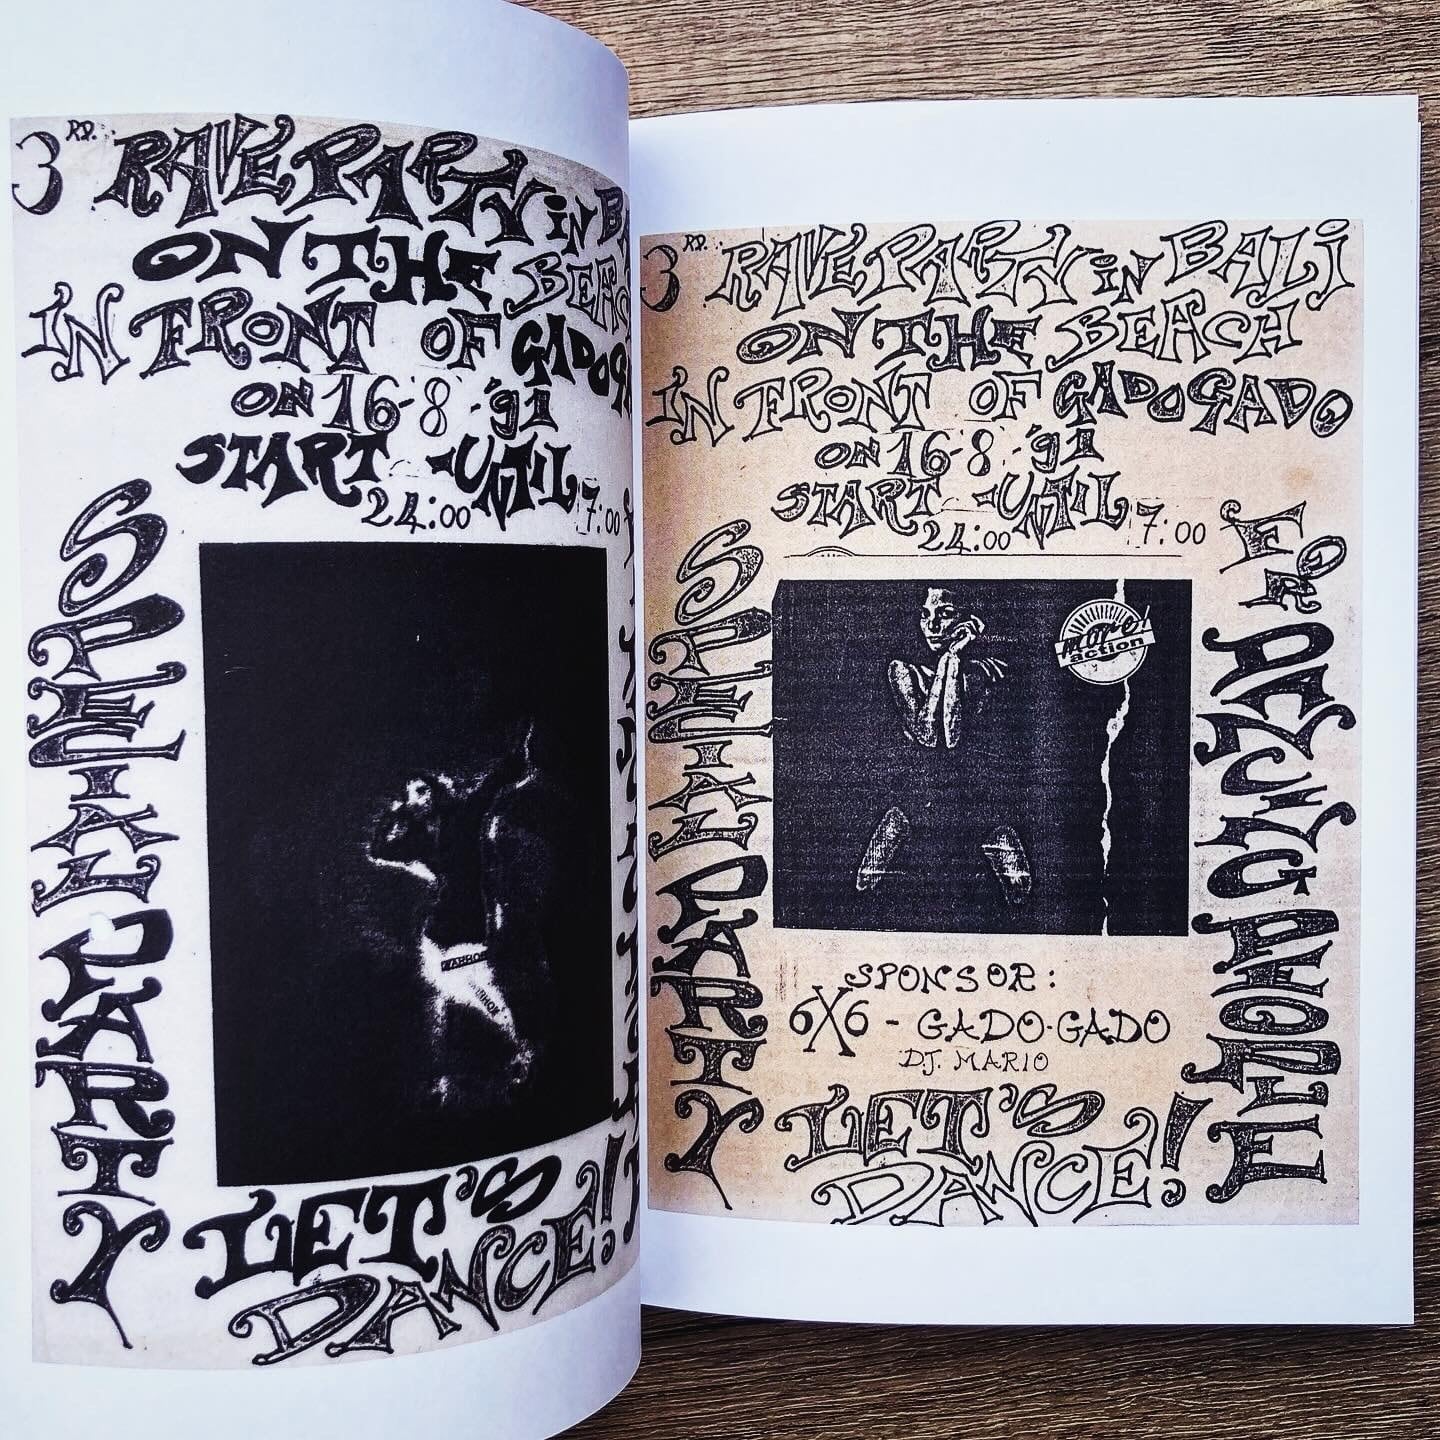 3RD. RAVE PARTY iN BA
ON THE BEAC
iN FRONT OF GADOGA
ON 16-8-'91
START -UNTIL
24:00 7:00
SPECIAL PARTY
LET'S
DANCE!
3RD. RAVE PARTY iN BALi
ON THE BEACH
iN FRONT OF GADOGADO
ON 16-8-'91
START -UNTIL
24:00 7:00
SPECIAL PARTY
more!
action
FOR PEOPLE
SPONSOR:
6X6 - GADO-GADO
D.J. MARIO
LET'S
DANCE!